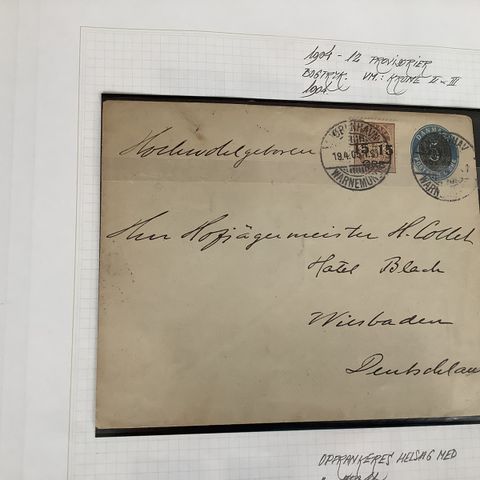 1904 - 12 PROVISORIER
BOGTRYK. VM.: KRONE II - III
1904
KJØBENHAVN
15 15
ØRE
19.4.05
WARNEMÜNDE
DANMARK
5
Hochwohlgeboren
Herr Hofjägermeister H. Collet
Hotel Block
Wiesbaden
Deutschlan
OPFRANKERES HELSAG MED